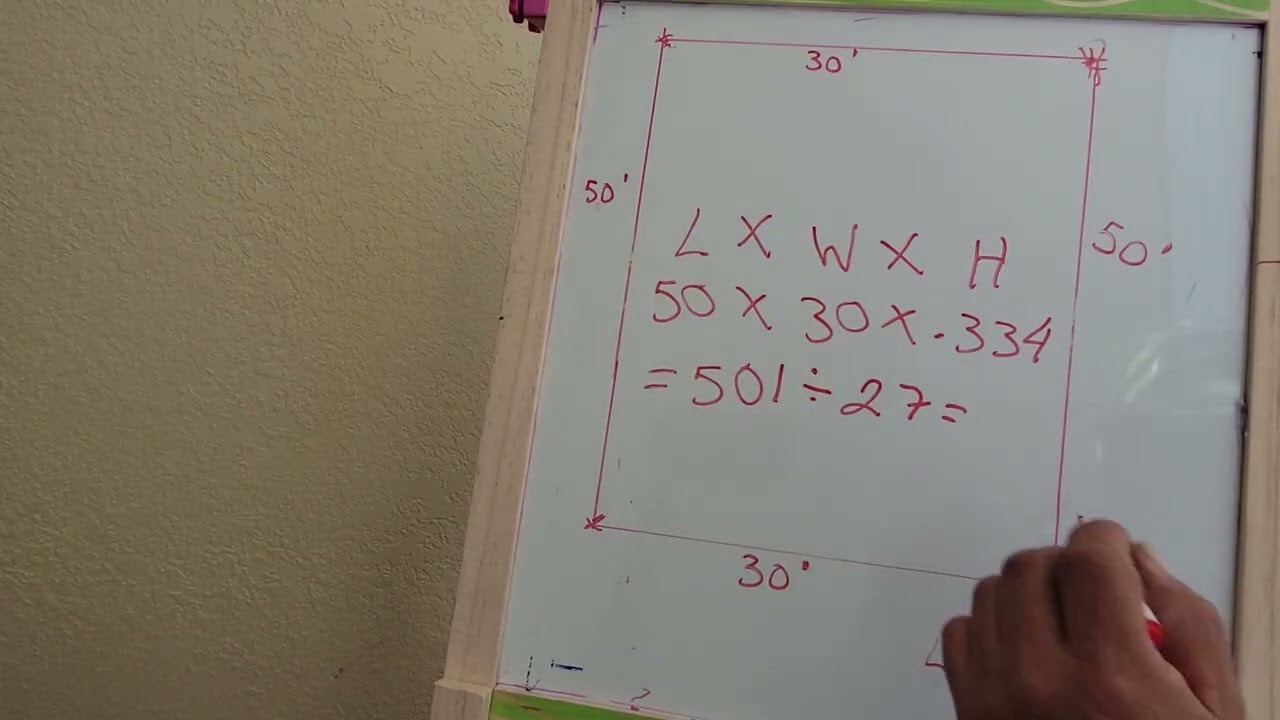 30'
50'
50'
L X W X H
50 X 30 X .334
= 501 ÷ 27 =
30'